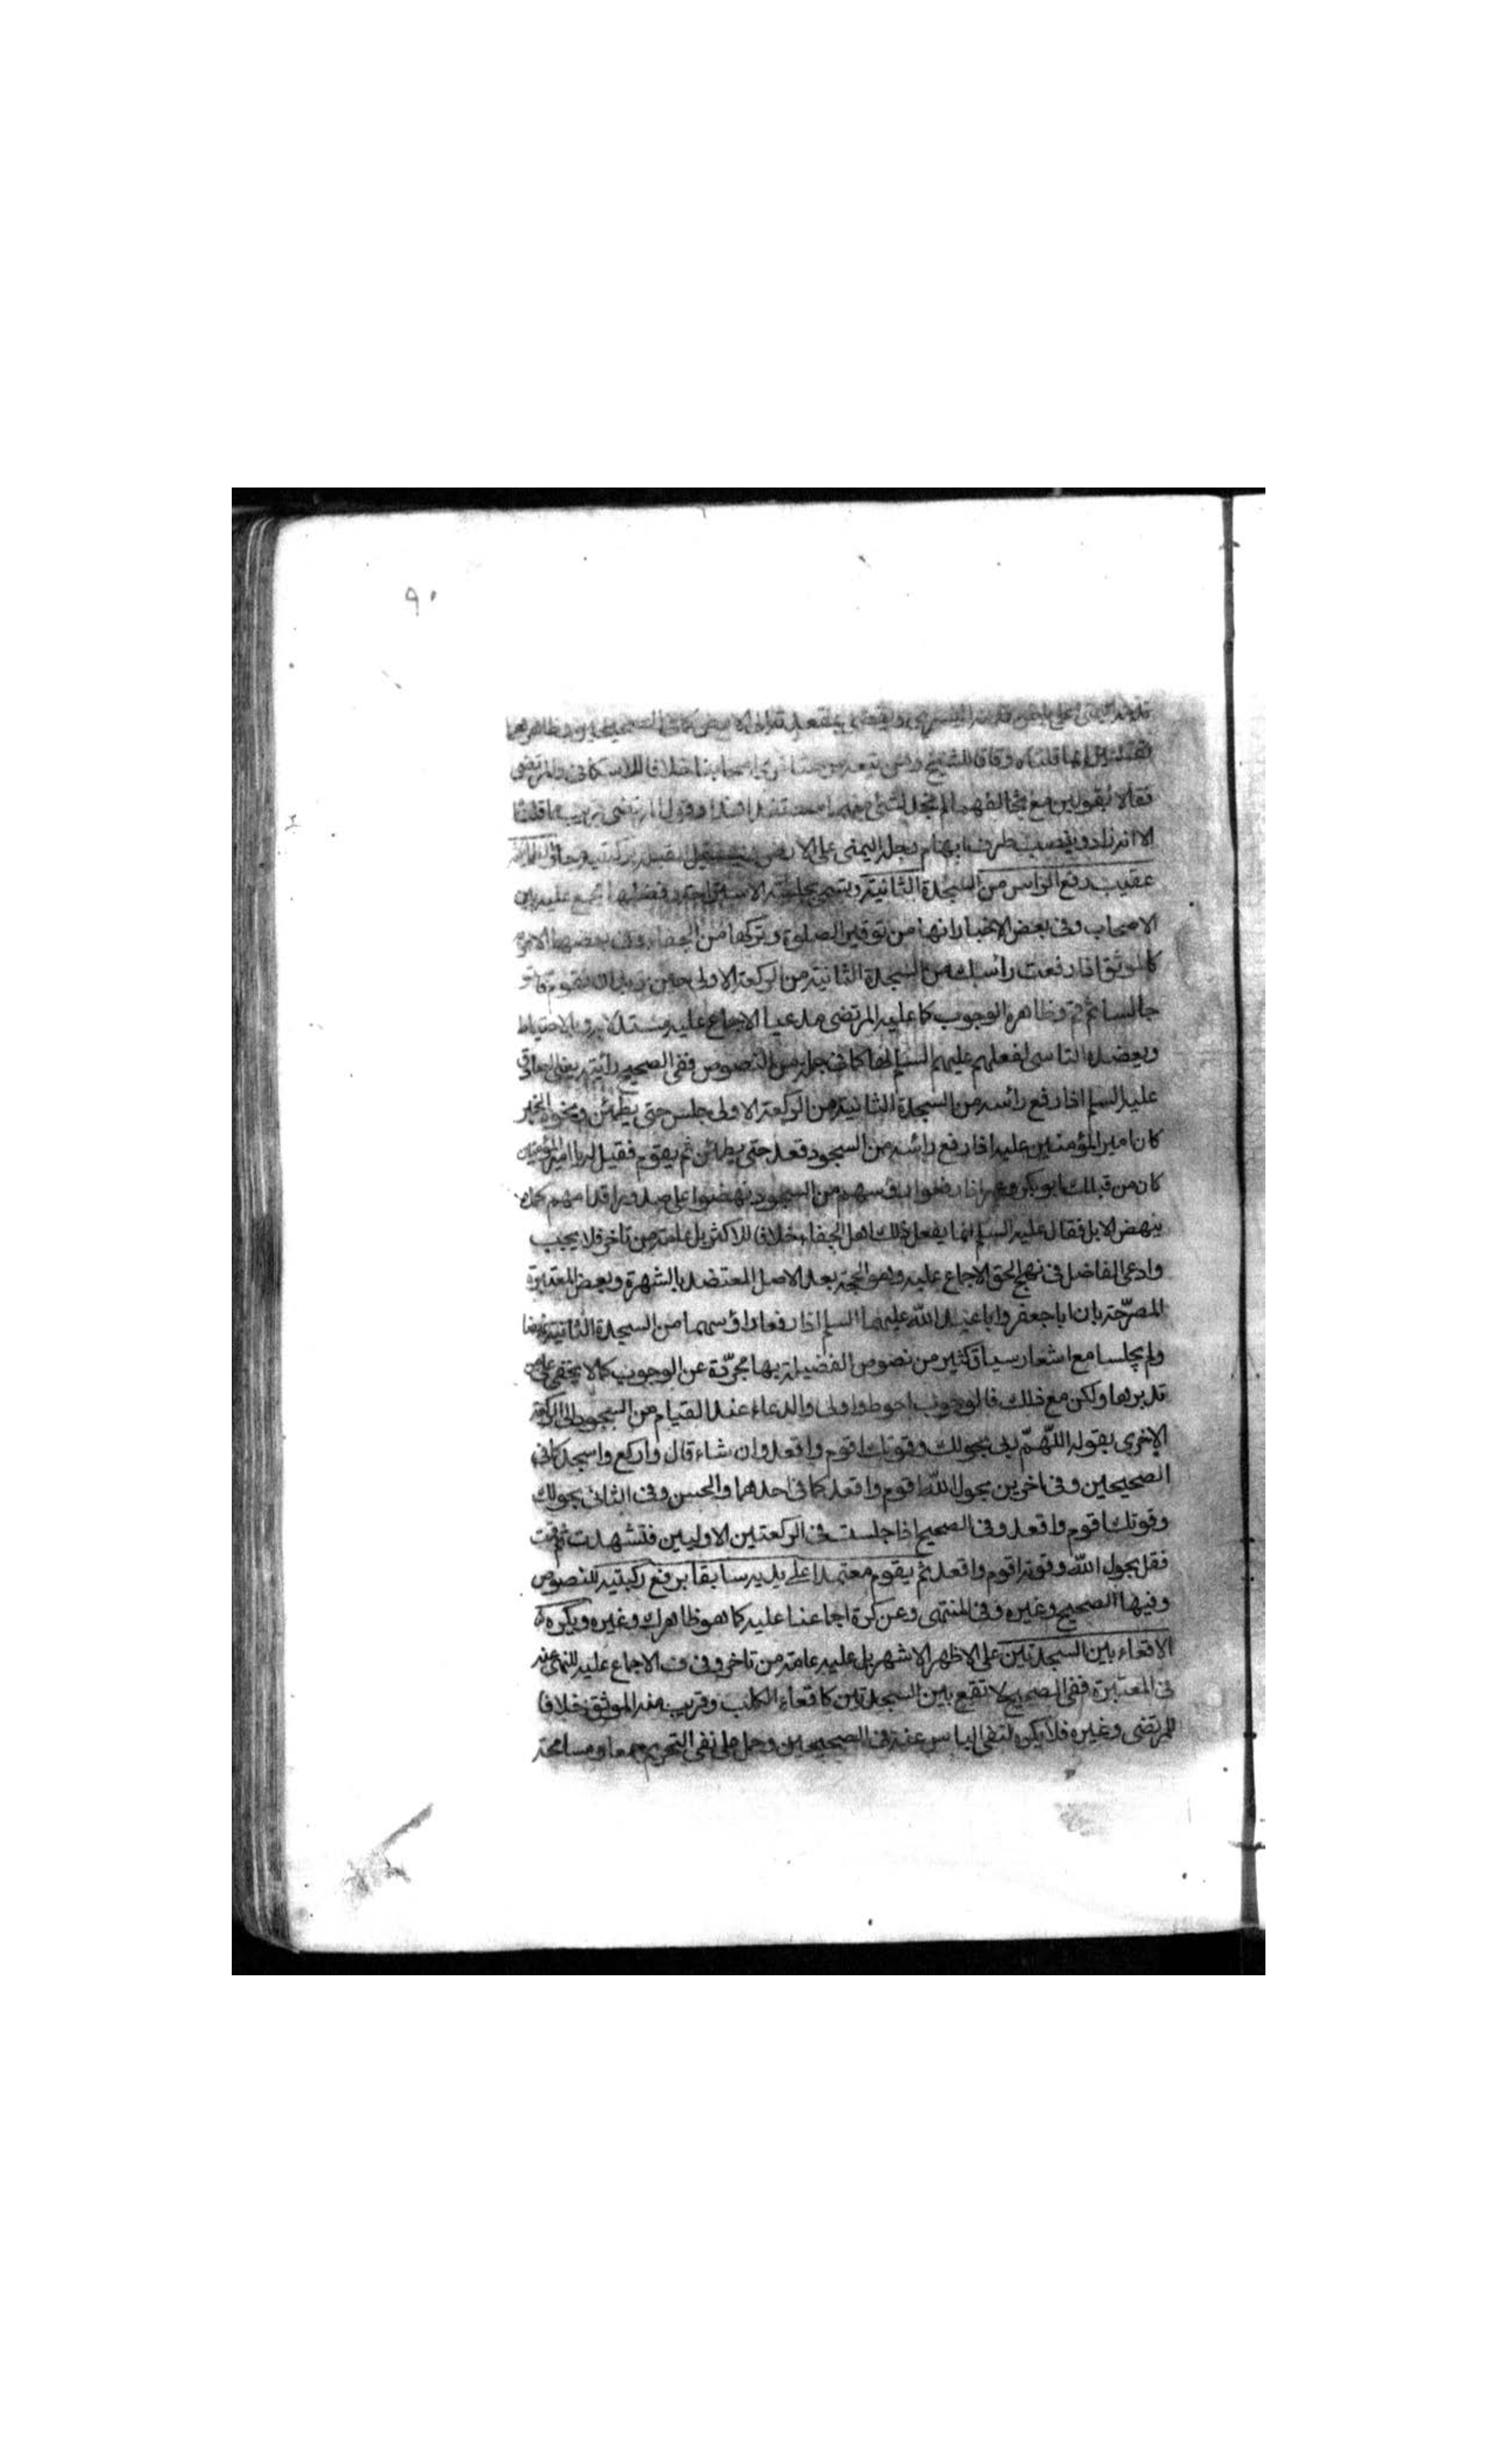 ٩٠
قدمه اليمنى على باطن قدمه اليسرى ويفضى بمقعدته الى الارض كما فى الصحيحين وظاهرهما
تفسيره بما قلناه وفاقا للشيخ ومن تبعه من متأخرى اصحابنا خلافا للاسكافى والمرتضى
فقالا بقولين مع مخالفهما لم نجد لشئ منهما مستندا وقول المرتضى قريب مما قلنا
الا انه زاد وينصب طرف ابهام رجله اليمنى على الارض ويستقبل بركبتيه
عقيب رفع الراس من السجدة الثانية ويسمى بجلسة الاستراحة وفضلها مجمع عليه بين
الاصحاب وفى بعض الاخبار انها من توقير الصلوة وتركها من الجفاء وفى بعضها الامر
كالموثق اذا رفعت راسك من السجدة الثانية من الركعة الاولى حين تريد ان تقوم فاستو
جالسا ثم قم وظاهره الوجوب كما عليه المرتضى مدعيا الاجماع عليه مستدلا به وبالاحتياط
ويعضده التاسى لفعلهم عليهم السلم لها كما فى جملة من النصوص ففى الصحيح رأيته يعنى الصادق
عليه السلم اذا رفع رأسه من السجدة الثانية من الركعة الاولى جلس حتى يطمئن ونحوه الخبر
كان امير المؤمنين عليه اذا رفع رأسه من السجود قعد حتى يطمئن ثم يقوم فقيل له يا امير المؤمنين
كان من قبلك ابو بكر وعمر اذا رفعوا رؤسهم من السجود نهضوا على صدور اقدامهم كما
ينهض الابل فقال عليه السلم انما يفعل ذلك اهل الجفاء خلافا للاكثر بل عامة من تاخر فلا يجب
وادعى الفاضل فى نهج الحق الاجماع عليه وهو الحجة بعد الاصل المعتضد بالشهرة وبعض المعتبرة
المصرّحة بان ابا جعفر وابا عبد الله عليهما السلم اذا رفعا رؤسهما من السجدة الثانية نهضا
ولم يجلسا مع اشعار سياق كثير من نصوص الفضيلة بها مجرّدة عن الوجوب كما لا يخفى على من
تدبرها ولكن مع ذلك فالوجوب احوط واولى والدعاء عند القيام من السجود الى الركعة
الاخرى بقوله اللهمّ ربى بحولك وقوتك اقوم واقعد وان شاء قال واركع واسجد كما فى
الصحيحين وفى اخرين بحول الله اقوم واقعد كما فى احدهما والحسن وفى الثانى بحولك
وقوتك اقوم واقعد وفى الصحيح اذا جلست فى الركعتين الاوليين فتشهدت ثم قمت
فقل بحول الله وقوته اقوم واقعد ثم يقوم معتمدا على يديه سابقا برفع ركبتيه للنصوص
وفيها الصحيح وغيره وفى المنتهى وعن كرة اجماعنا عليه كما هو ظاهرك وغيره ويكره
الاقعاء بين السجدتين على الاظهر الاشهر بل عليه عامة من تاخر وفى ف الاجماع عليه للنهى عنه
فى المعتبرة ففى الصحيح لا تقع بين السجدتين كاقعاء الكلب وقريب منه الموثق خلافا
للمرتضى وغيره فلا يكره لنفى الباس عنه فى الصحيحين وحمل على نفى التحريم جمعا ومسامحة